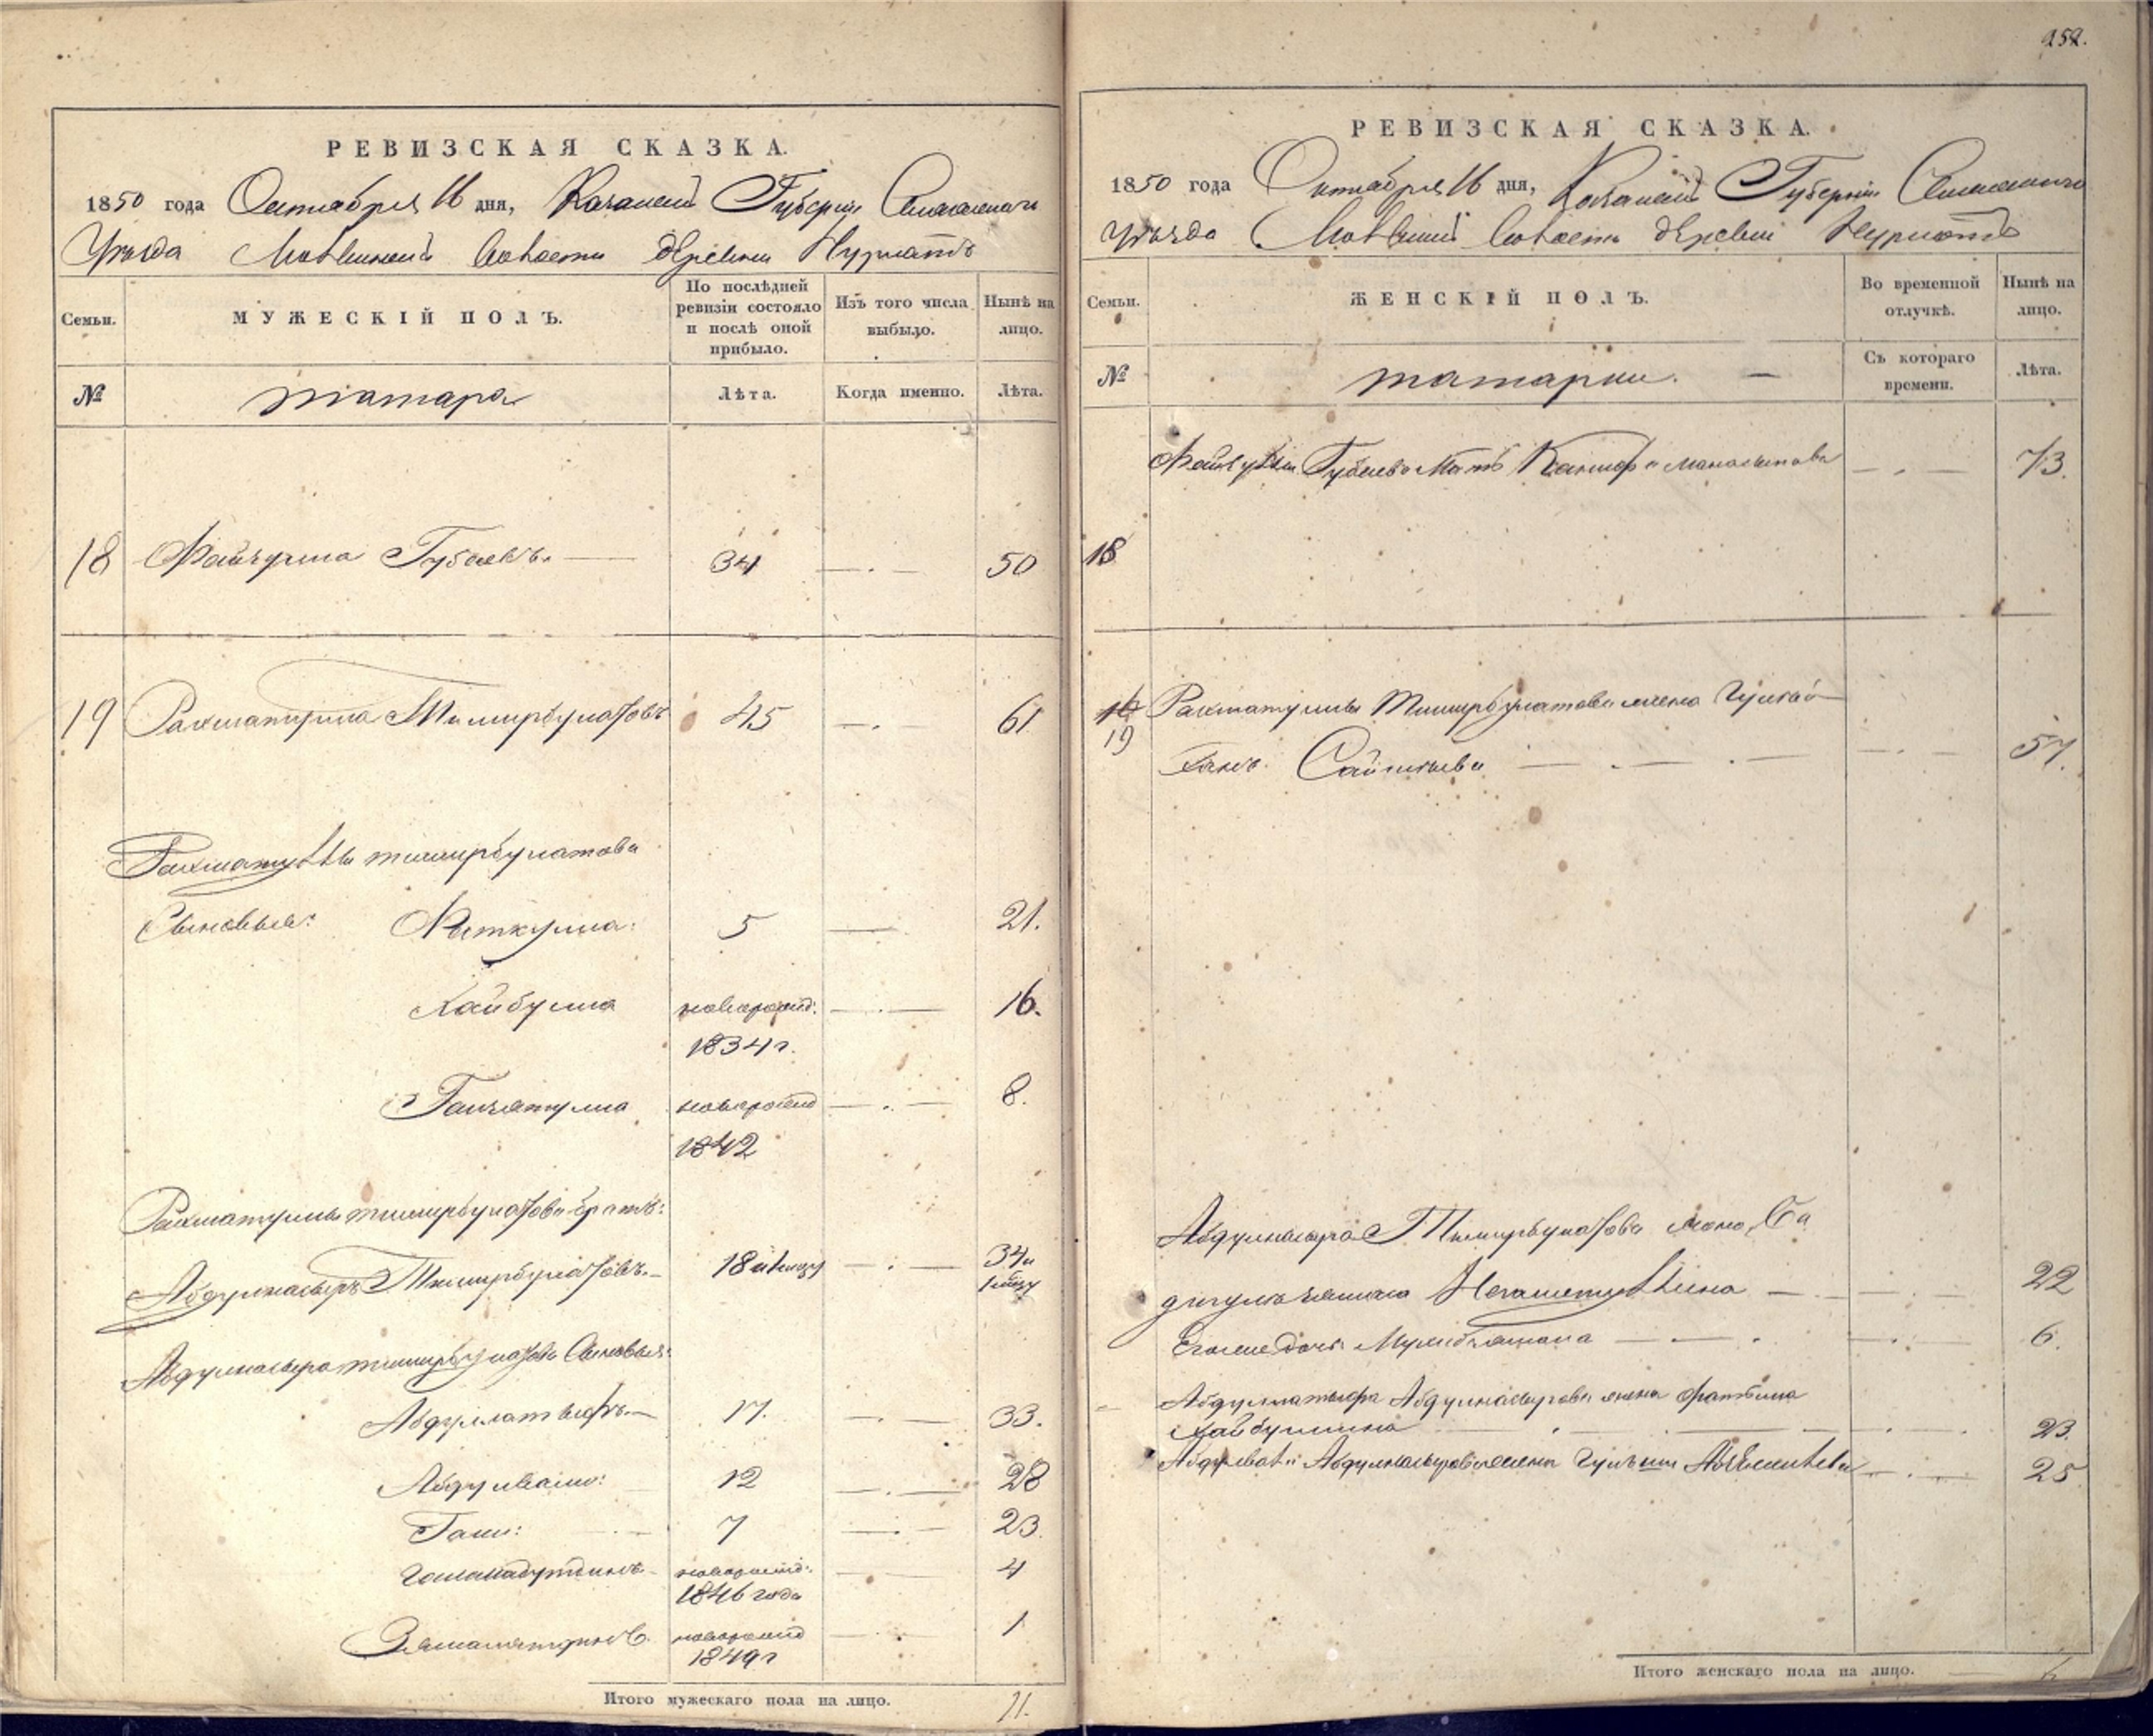 РЕВИЗСКАЯ СКАЗКА.
1850 года Октября 16 дня, Казанской Губернии Спасскаго
Уѣзда волости деревни Нурлатъ
Семьи.
МУЖЕСКІЙ ПОЛЪ.
По послѣдней ревизіи состояло и послѣ оной прибыло.
Изъ того числа выбыло.
Нынѣ на лицо.
№
татара
Лѣта.
Когда именно.
Лѣта.
18 Файзулла Губаевъ. 34 50
19 Рахматулла Тимирбулатовъ 45 61
Рахматуллы тимирбулатова
Сыновья: Фаткулла: 5 21.
Хайбулла новорожд: 16.
1834 г.
Ганчатулла новорожд 8.
1842
Рахматуллы тимирбулатова братъ:
Абдулнасыръ Тимирбулатовъ. 18 34
Абдулнасыра тимирбулатова Сыновья:
Абдуллатыфъ. 17. 33.
Абдулвали: 12 28
Гани: 7 23.
новорожд: 4
1846 года
новорожд 1
1849 г
Итого мужескаго пола на лицо. 11.
252.
РЕВИЗСКАЯ СКАЗКА.
1850 года Октября 16 дня, Казанской Губернии Спасскаго
Уѣзда волости деревни Нурлатъ
Семьи.
ЖЕНСКІЙ ПОЛЪ.
Во временной отлучкѣ.
Нынѣ на лицо.
№
татарки.
Съ котораго времени.
Лѣта.
Файзуллы Губаева Мать 73.
18
Рахматуллы Тимирбулатова жена
19 Сайткыева 57.
Абдулнасыра Тимирбулатова жена
22
Егоже дочь 6.
Абдуллатыфа Абдулнасырова жена Фатыма
Хайбуллина 23.
Абдулвали Абдулнасырова жена 25
Итого женскаго пола на лицо. 6